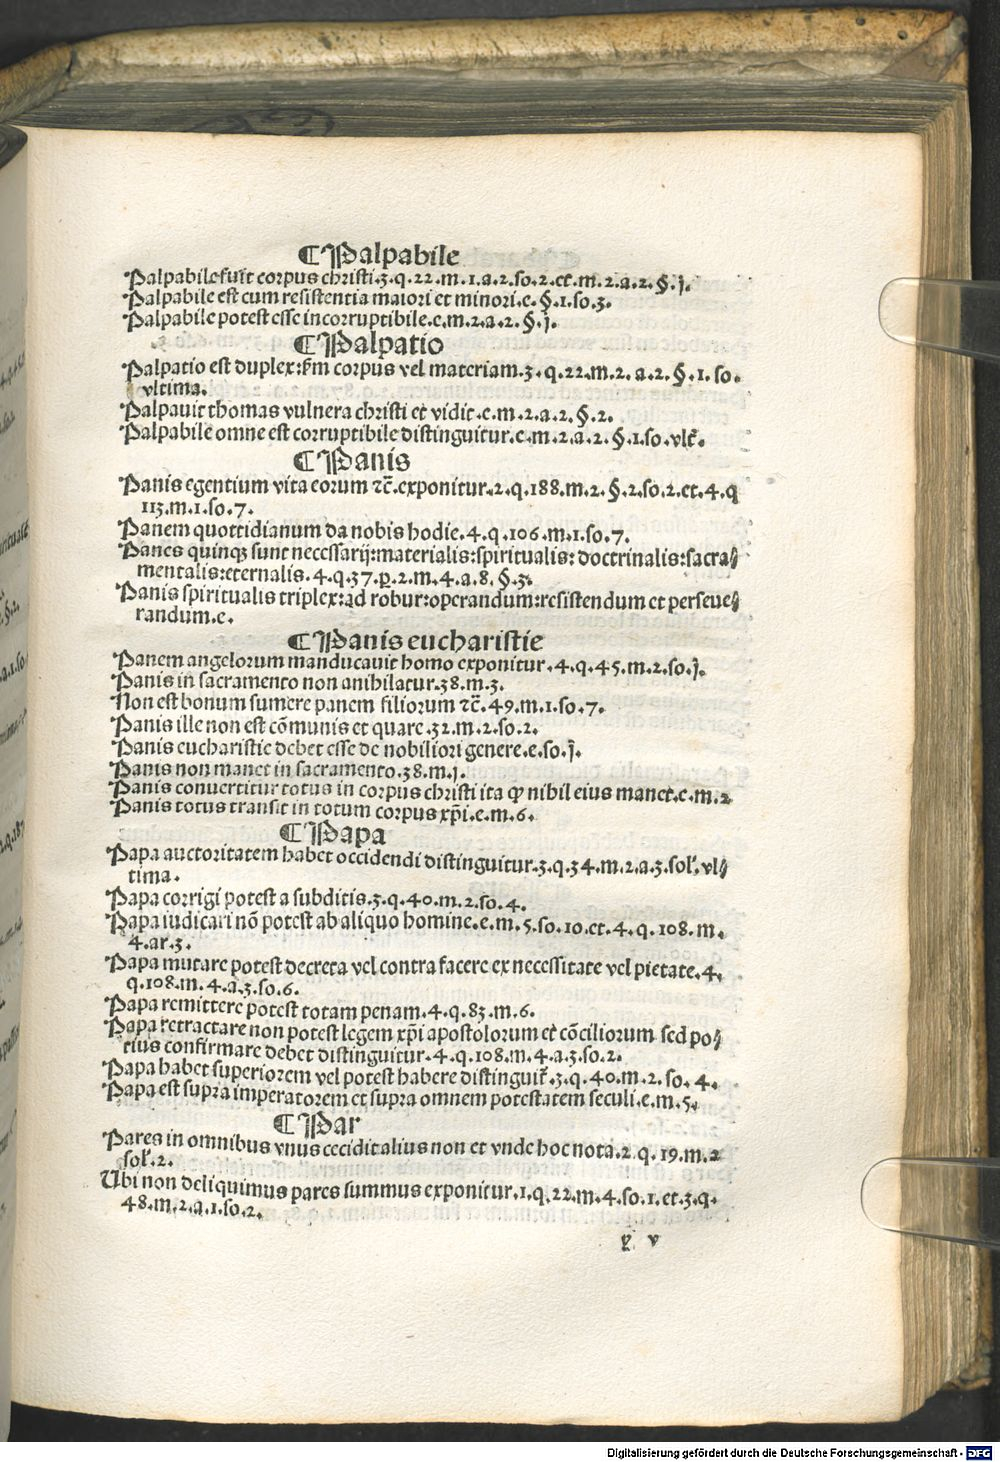 ¶ Palpabile
Palpabile fuit corpus christi.3.q.22.m.1.a.2.so.2.et.m.2.a.2.§.j.
Palpabile est cum resistentia maiori et minori.e.§.1.so.3.
Palpabile potest esse incorruptibile.e.m.2.a.2.§.j.
¶ Palpatio
Palpatio est duplex:fm corpus vel materiam.3.q.22.m.2.a.2.§.1.so.
vltima.
Palpauit thomas vulnera christi et vidit.e.m.2.a.2.§.2.
Palpabile omne est corruptibile distinguitur.e.m.2.a.2.§.1.so.vlt̄.
¶ Panis
Panis egentium vita eorum ⁊c̄.exponitur.2.q.188.m.2.§.2.so.2.et.4.q
113.m.1.so.7.
Panem quottidianum da nobis hodie.4.q.106.m.1.so.7.
Panes quinqꝫ sunt necessarij:materialis:spiritualis:doctrinalis:sacra⸗
mentalis:eternalis.4.q.37.p.2.m.4.a.8.§.3.
Panis spiritualis triplex:ad robur:operandum:resistendum et perseue⸗
randum.e.
¶ Panis eucharistie
Panem angelorum manducauit homo exponitur.4.q.45.m.2.so.j.
Panis in sacramento non anihilatur.38.m.3.
Non est bonum sumere panem filiorum ⁊c̄.49.m.1.so.7.
Panis ille non est cōmunis et quare.32.m.2.so.2.
Panis eucharistie debet esse de nobiliori genere.e.so.j.
Panis non manet in sacramento.38.m.j.
Panis conuertitur totus in corpus christi ita ꝙ nihil eius manet.e.m.2
Panis totus transit in totum corpus xp̄i.e.m.6.
¶ Papa
Papa auctoritatem habet occidendi distinguitur.3.q.34.m.2.a.3.sol̄.vl⸗
tima.
Papa corrigi potest a subditis.3.q.40.m.2.so.4.
Papa iudicari nō potest ab aliquo homine.e.m.5.so.10.et.4.q.108.m.
4.ar.3.
Papa mutare potest decreta vel contra facere ex necessitate vel pietate.4.
q.108.m.4.a.3.so.6.
Papa remittere potest totam penam.4.q.83.m.6.
Papa retractare non potest legem xp̄i apostolorum et cōciliorum sed po⸗
tius confirmare debet distinguitur.4.q.108.m.4.a.3.so.2.
Papa habet superiorem vel potest habere distinguit̄.3.q.40.m.2.so.4.
Papa est supra imperatorem et supra omnem potestatem seculi.e.m.5.
¶ Par
Pares in omnibus vnus cecidit alius non et vnde hoc nota.2.q.19.m.2
sol̄.2.
Ubi non deliquimus pares sumus exponitur.1.q.22.m.4.so.1.et.3.q.
48.m.2.a.1.so.2.
y v
Digitalisierung gefördert durch die Deutsche Forschungsgemeinschaft - DFG